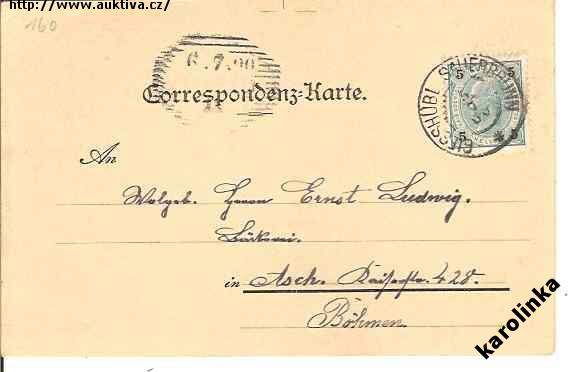 http://www.auktiva.cz/
160
6.7.00
GIESSHÜBL SAUERBRUNN
5 5
5 5
Correspondenz-Karte.
An
Wolgeb. Herrn Ernst Ludwig.
Bäckerei.
in Asch. Kaiserstr. 428.
Böhmen.
karolinka